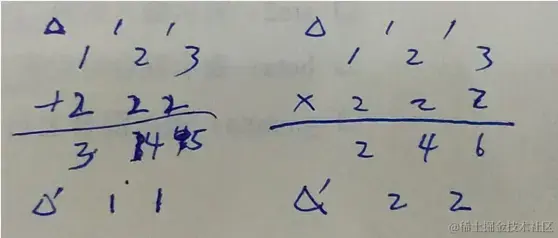 Δ ' '
1 2 3
+2 2 2
3 4 5
Δ' 1 1
Δ ' '
1 2 3
× 2 2 2
2 4 6
Δ' 2 2
@稀土掘金技术社区